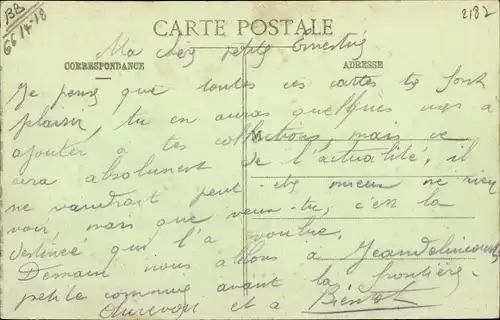 BB
66 14-18
2182
CARTE POSTALE
Ma petite
CORRESPONDANCE
ADRESSE
Je pense que toutes ces cartes te font
plaisir, tu en auras quelques unes a
M
ajouter à tes collections mais ce
sera absolument de l'actualité, il
ne vaudrait peut-etre mieux ne rien
voir, mais que veux-tu, c'est la
destinée qui l'a voulue.
Demain nous allons à Jeandelincourt
petite commune avant la frontière.
Aurevoir et a Bientot